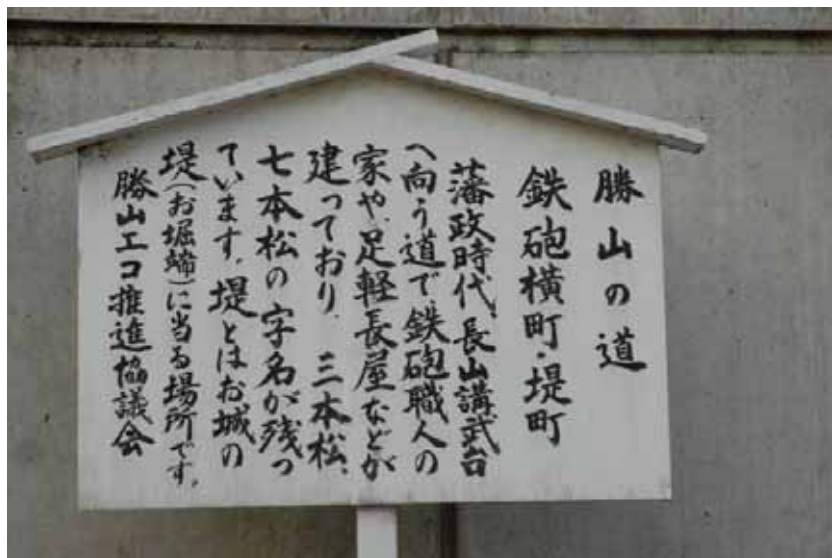 勝山の道
鉄砲横町・堤町
藩政時代、長山講武台
へ向う道で、鉄砲職人の
家や、足軽長屋などが
建っており、三本松、
七本松の字名が残っ
ています。堤とはお城の
堤(お堀端)に当る場所です。
勝山エコ推進協議会